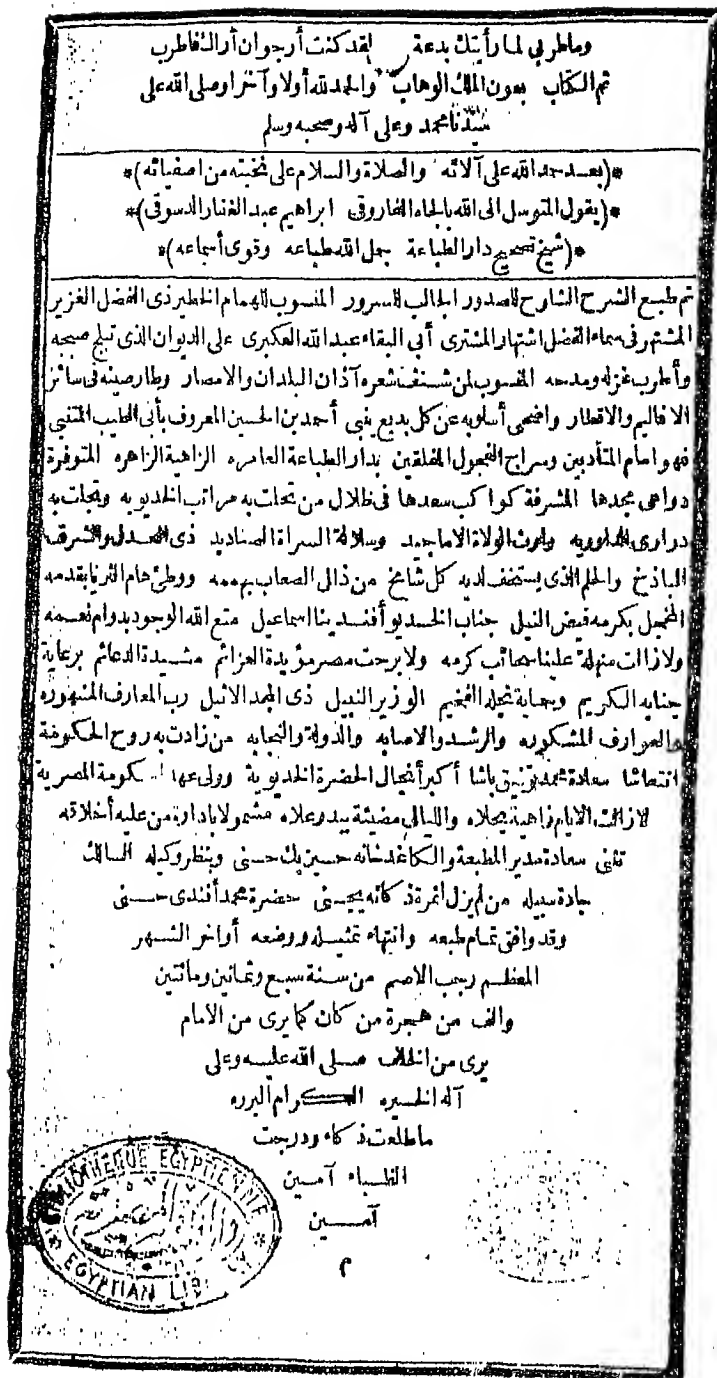 وماطربي لمارأيتك بدعة لقد كنت أرجوان أراك فاطرب
تم الكتاب بعون الملك الوهاب والحمد لله أولا وآخرا وصلى الله على
سيدنا محمد وعلى آله وصحبه وسلم
*(بعد حمد الله على آلائه والصلاة والسلام على نخبته من اصفيائه)*
*(يقول المتوسل الى الله بالجاه الفاروقى ابراهيم عبد الغفار الدسوقى)*
*(شيخ تصحيح دار الطباعة جمل الله طباعه وقوى أسماعه)*
تم طبع الشرح الشارح للصدور الجالب للسرور المنسوب للهمام الخطير ذى الفضل الغزير
المشتهر فى سماء الفضل اشتهار المشترى أبى البقاء عبد الله العكبرى على الديوان الذى تبلج صبحه
وأطرب غزله ومدحه المنسوب لمن شنفت شعره آذان البلدان والامصار وطار صيته فى سائر
الاقاليم والاقطار واضحى أسلوبه عن كل بديع ينبى أحمد بن الحسين المعروف بأبى الطيب المتنبى
فهو امام المتأدبين وسراج الفحول المفلقين بدار الطباعة العامره الزاهية الزاهره المتوفرة
دواعى مجدها المشرفة كواكب سعدها فى ظلال من تحلت به مراتب الخديويه وتجلت به
دوارى وارث الولاة الاماجد وسلالة السراة الصناديد ذى المجد والشرف
الباذخ والحلم الذى يستخف لديه كل شامخ من ذلل الصعاب بهممه ووطئ هام الثريا بقدمه
المخجل بكرمه فيض النيل جناب الخديو أفندينا اسماعيل متع الله الوجود بدوام نعمه
ولا زالت منهلة علينا سحائب كرمه ولا برحت مصر مؤيدة العزائم مشيدة الدعائم برعاية
جنابه الكريم وبحماية نجله الفخيم الوزير النبيل ذى المجد الاثيل رب المعارف المشهوره
والعوارف المشكوره والرشد والاصابه والدولة والنجابه من زادت به روح الحكومة
انتعاشا سعادة محمد توفيق باشا أكبر أنجال الحضرة الخديوية وولى عهد الحكومة المصرية
لا زالت الايام زاهية بحلاه والليالى مضيئة ببدر علاه مشمولا بادارة من عليه أخلاقه
تثنى سعادة مدير المطبعة والكاغدخانه حسين بك حسنى وبنظر وكيله السالك
جادة سبيله من لم يزل ثمرة ذكائه يجتنى حضرة محمد أفندى حسنى
وقد وافق تمام طبعه وانتهاء تمثيله ووضعه أواخر الشهر
المعظم رجب الاصم من سنة سبع وثمانين ومائتين
والف من هجرة من كان كما يرى من الامام
يرى من الخلف صلى الله عليه وعلى
آله الخيره الكرام البرره
ماطلعت ذكاء ودرجت
الظباء آمين
آمين
م
BIBLIOTHEQUE EGYPTIENNE
EGYPTIAN